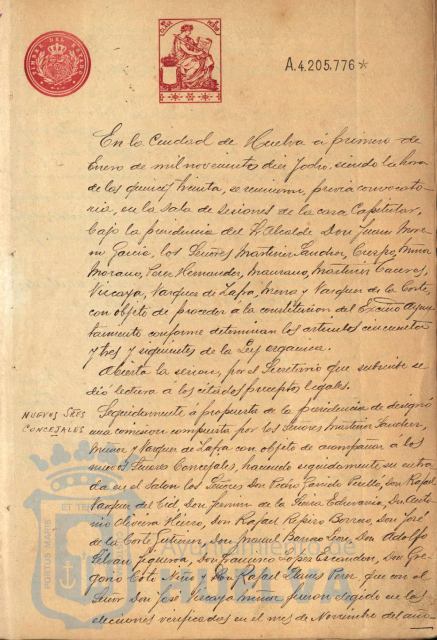 TIMBRE DEL ESTADO
A.4.205.776*
En la Ciudad de Huelva á primero de
Enero de mil novecientos diez y ocho, siendo la hora
de las quince y treinta, se reunieron, previa convocato-
ria, en la Sala de Sesiones de la casa Capitular,
bajo la presidencia del Sr. Alcalde Don Juan More-
no Garcia, los Señores Martinez Sanchez, Crespo, Muñoz
Morano, Hernandez, Martinez Caceres,
Vizcaya, Vazquez de Zafra, y Vazquez de la Corte,
con objeto de proceder a la constitucion del Excmo Ayun-
tamiento conforme determinan los articulos cincuenta
y tres y siguientes de la Ley organica.
Abierta la sesion, por el Secretario que subscribe se
dió lectura á los citados preceptos legales.
NUEVOS SRES
CONCEJALES
Seguidamente á propuesta de la presidencia se designó
una comision compuesta por los Señores Martinez Sanchez,
Muñoz y Vazquez de Zafra con objeto de acompañar á los
nuevos Señores Concejales, haciendo seguidamente su entra-
da en el Salon los Señores Don Pedro Garrido Perelló, Don Rafael
Vazquez del Cid, Don de la Sierra Don Anto-
nio Oliveira Don Rafael Borrero, Don José
de la Corte Gutierrez, Don Manuel Barroso Don Adolfo
Figueroa, Don Francisco Lopez Don Gre-
gorio y Don Rafael Perez, que con el
Señor Don José Vizcaya Muñoz fueron elegidos en las
elecciones verificadas en el mes de Noviembre del año
PORTUS MARIS
ET TER
Ayuntamiento de